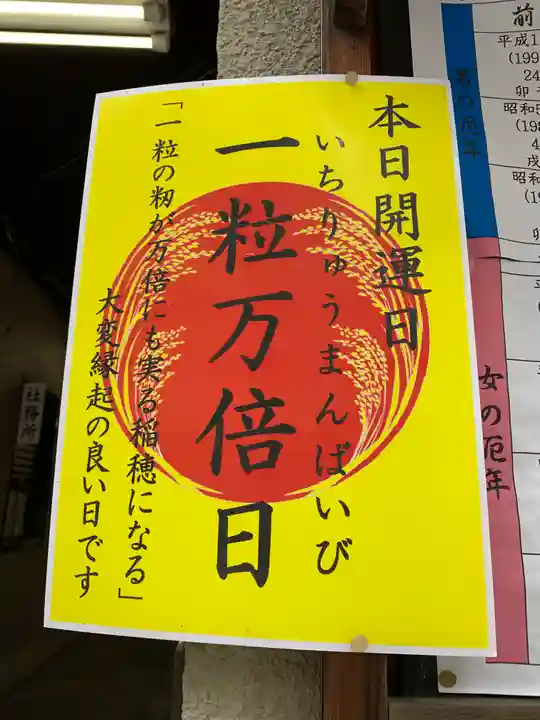 本日開運日
いちりゅうまんばいび
一粒万倍日
「一粒の籾が万倍にも実る稲穂になる」
大変縁起の良い日です
社務所
前
平成1
(199
24
卯
昭和5
(198
4
戌
昭和
(19
卯
男の厄年
女の厄年